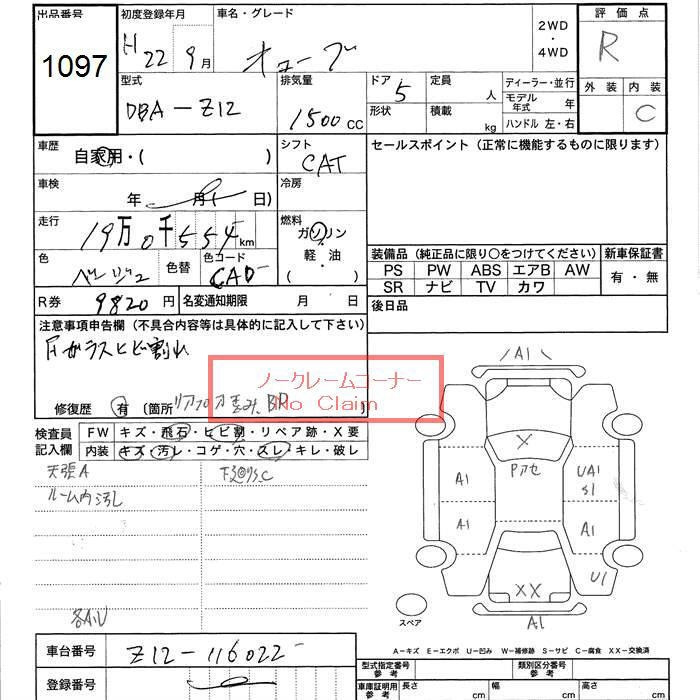 出品番号
1097
初度登録年月
H 22 9月
車名・グレード
キューブ
2WD
・
4WD
評価点
R
外装 内装
C
型式
DBA-Z12
排気量
1500 CC
ドア 5
形状
定員 人
積載 kg
ディーラー・並行
モデル年式 年
ハンドル 左・右
車歴
自家用・( )
シフト
CAT
セールスポイント(正常に機能するものに限ります)
車検
年 月( 日)
冷房
走行
19万0千554km
燃料
ガソリン
軽・油
( )
色
ベージュ
色替
色コード
CAD-
装備品(純正品に限り〇をつけてください)
PS PW ABS エアB AW
SR ナビ TV カワ
新車保証書
有・無
R券 9820円
名変通知期限 月 日
後日品
注意事項申告欄(不具合内容等は具体的に記入して下さい)
Fガラスヒビ割れ
ノークレームコーナー
No Claim
修復歴 有 (箇所 BP )
検査員
記入欄
FW キズ・飛石・ヒビ割・リペア跡・X要
内装 キズ・汚レ・コゲ・穴・スレ・キレ・破レ
天張A
ルーム内汚し
各A,U
A1
X
Pアセ
A1
UA1
S1
A1
A1
U1
XX
A1
スペア
A-キズ E-エクボ U-凹み W-補修跡 S-サビ C-腐食 XX-交換済
車台番号
Z12-116022-
登録番号
型式指定番号
参考
類別区分番号
参考
車庫証明用
参考
長さ cm
幅 cm
高さ cm